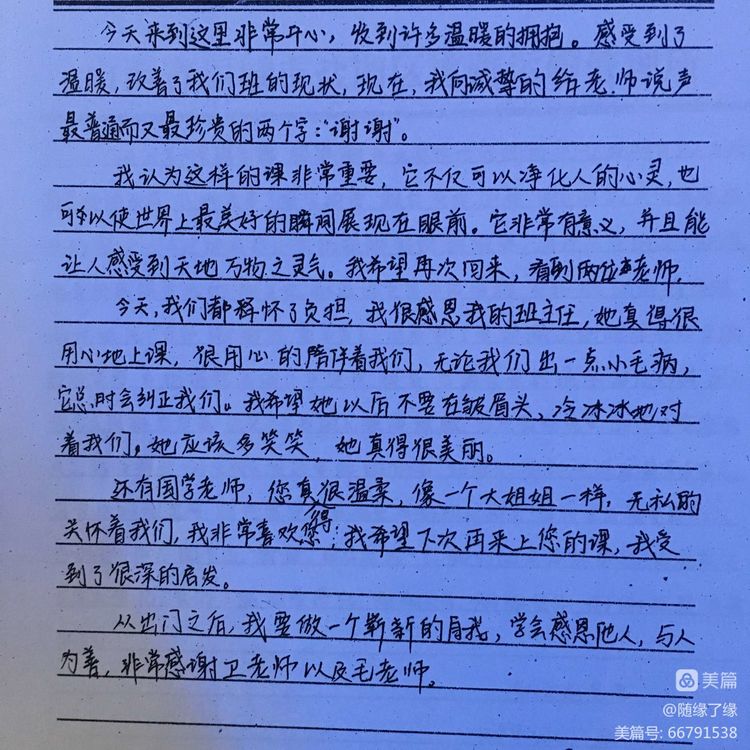 今天来到这里非常开心，收到许多温暖的拥抱。感受到了
温暖，改善了我们班的现状，现在，我向诚挚的给老师说声
最普通而又最珍贵的两个字：“谢谢”。
我认为这样的课非常重要，它不仅可以净化人的心灵，也
可以使世界上最美好的瞬间展现在眼前。它非常有意义，并且能
让人感受到天地万物之灵气。我希望再次回来，看到两位老师.
今天，我们都释怀了负担，我很感恩我的班主任，她真得很
用心地上课，很用心的陪伴着我们，无论我们出一点小毛病，
它总时会纠正我们。我希望她以后不要在皱眉头，冷冰冰地对
着我们，她应该多笑笑，她真得很美丽。
还有国学老师，您真得很温柔，像一个大姐姐一样，无私的
关怀着我们，我非常喜欢您；我希望下次再来上您的课，我受
到了很深的启发。
从出门之后，我要做一个崭新的自我，学会感恩他人，与人
为善，非常感谢卫老师以及毛老师。
美篇
@随缘了缘
美篇号: 66791538